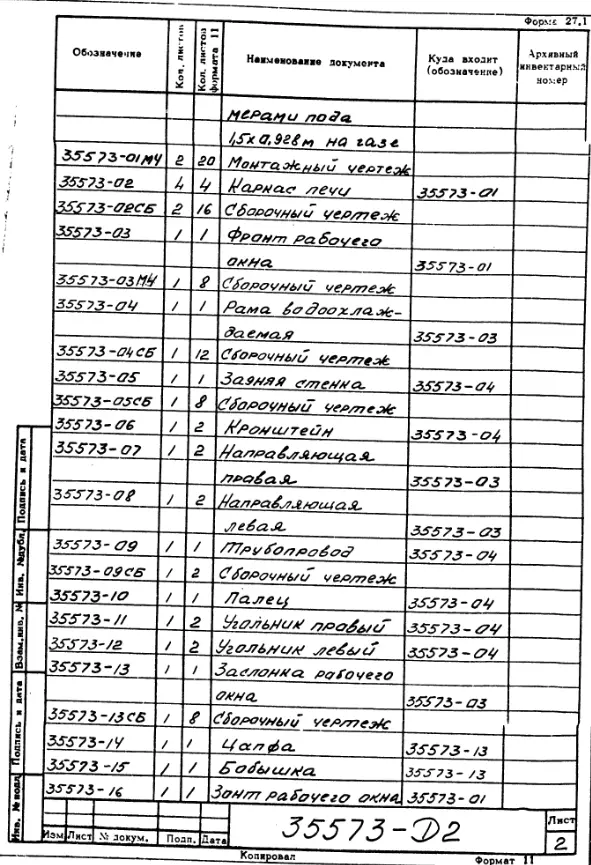 Форма 27.1
Обозначение Кол. листов Кол. листов формата 11 Наименование документа Куда входит (обозначение) Архивный инвентарный номер
мерами пода
1,5х0,928м на газе
35573-01МЧ 2 20 Монтажный чертеж
35573-02 4 4 Каркас печи 35573-01
35573-02СБ 2 16 Сборочный чертеж
35573-03 1 1 Фронт рабочего
окна 35573-01
35573-03МЧ 1 8 Сборочный чертеж
35573-04 1 1 Рама водоохлаж-
даемая 35573-03
35573-04СБ 1 12 Сборочный чертеж
35573-05 1 1 Задняя стенка 35573-04
35573-05СБ 1 8 Сборочный чертеж
35573-06 1 2 Кронштейн 35573-04
35573-07 1 2 Направляющая
правая 35573-03
35573-08 1 2 Направляющая
левая 35573-03
35573-09 1 1 Трубопровод 35573-04
35573-09СБ 1 2 Сборочный чертеж
35573-10 1 1 Палец 35573-04
35573-11 1 2 Угольник правый 35573-04
35573-12 1 2 Угольник левый 35573-04
35573-13 1 1 Заслонка рабочего
окна 35573-03
35573-13СБ 1 8 Сборочный чертеж
35573-14 1 1 Цапфа 35573-13
35573-15 1 1 Бобышка 35573-13
35573-16 1 1 Зонт рабочего окна 35573-01
Подпись и дата
Инв. №дубл.
Взам.инв. №
Подпись и дата
Инв. №подл
Изм Лист № докум. Подп. Дата
35573-D2
Лист
2
Копировал Формат 11